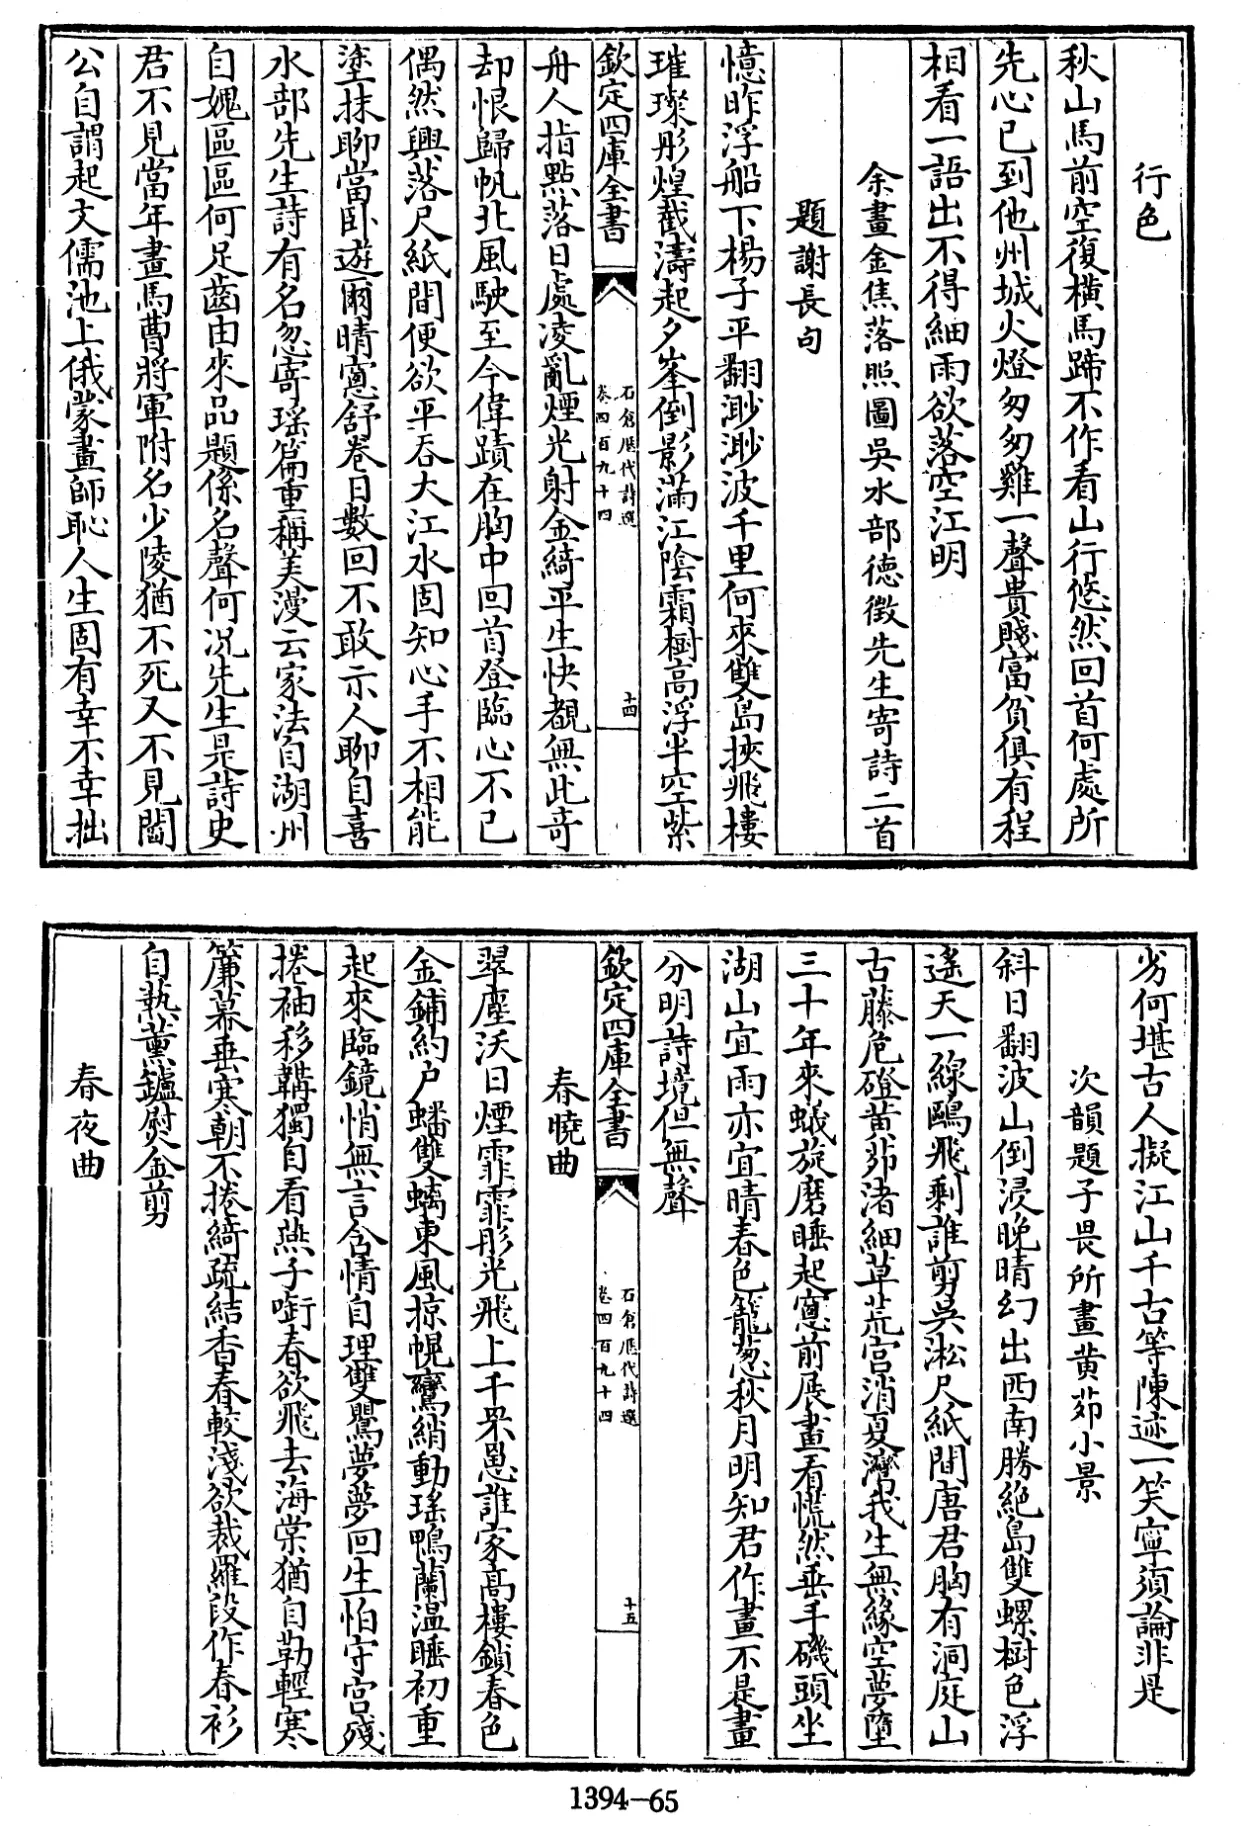 行色
秋山馬前空復横馬蹄不作看山行悠然回首何處所
先心已到他州城火燈匆匆雞一聲貴賤富貧俱有程
相看一語出不得細雨欲落空江明
余畫金焦落照圖吳水部德徴先生寄詩二首
題謝長句
憶昨浮船下楊子平翻渺渺波千里何來雙島挾飛樓
璀璨彤煌截濤起夕峯倒影滿江陰霜樹高浮半空紫
欽定四庫全書
石倉歷代詩選
卷四百九十四
十四
舟人指點落日處凌亂煙光射金綺平生快覩無此奇
却恨歸帆北風駛至今偉蹟在胸中回首登臨心不已
偶然興落尺紙間便欲平吞大江水固知心手不相能
塗抹聊當卧遊爾晴窻舒卷日數回不敢示人聊自喜
水部先生詩有名忽寄瑤篇重稱美漫云家法自湖州
自媿區區何足齒由來品題係名聲何況先生是詩史
君不見當年畫馬曹將軍附名少陵猶不死又不見閻
公自謂起文儒池上俄蒙畫師恥人生固有幸不幸拙
劣何堪古人擬江山千古等陳迹一笑寧須論非是
次韻題子畏所畫黄茆小景
斜日翻波山倒浸晚晴幻出西南勝絶島雙螺樹色浮
遙天一線鷗飛剩誰剪吳淞尺紙間唐君胸有洞庭山
古藤危磴黄茆渚細草荒宫消夏灣我生無緣空夢墮
三十年來蟻旋磨睡起窻前展畫看慌然垂手磯頭坐
湖山宜雨亦宜晴春色籠葱秋月明知君作畫不是畫
分明詩境但無聲
欽定四庫全書
石倉歷代詩選
卷四百九十四
十五
春曉曲
翠塵沃日煙霏霏彤光飛上千罘罳誰家高樓鎖春色
金鋪約户蟠雙螭東風掠幌鸞綃動瑤鴨蘭温睡初重
起來臨鏡悄無言含情自理雙鴛夢夢回生怕守宫殘
捲袖移鞲獨自看燕子啣春欲飛去海棠猶自勒輕寒
簾幕垂寒朝不捲綺疏結香春較淺欲裁羅段作春衫
自熱薰鑪熨金剪
春夜曲
1394-65